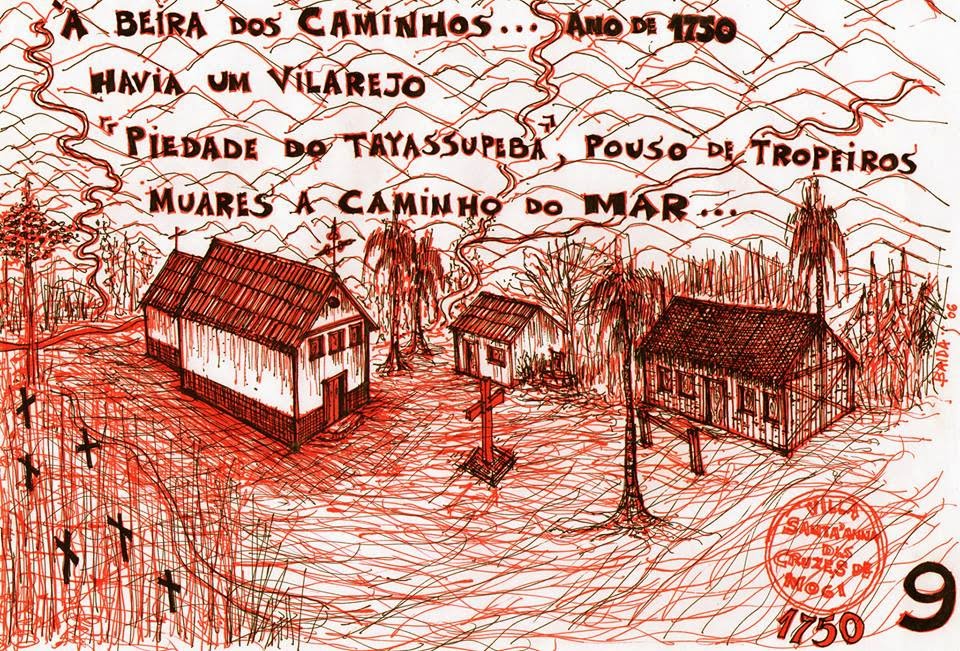 À BEIRA DOS CAMINHOS... ANO DE 1750
HAVIA UM VILAREJO
"PIEDADE DO TAYASSUPEBA", POUSO DE TROPEIROS
MUARES A CAMINHO DO MAR...
BAIDA 06
VILLA
SANTA'ANNA
DAS
CRUZES DE
MOGI
1750
9